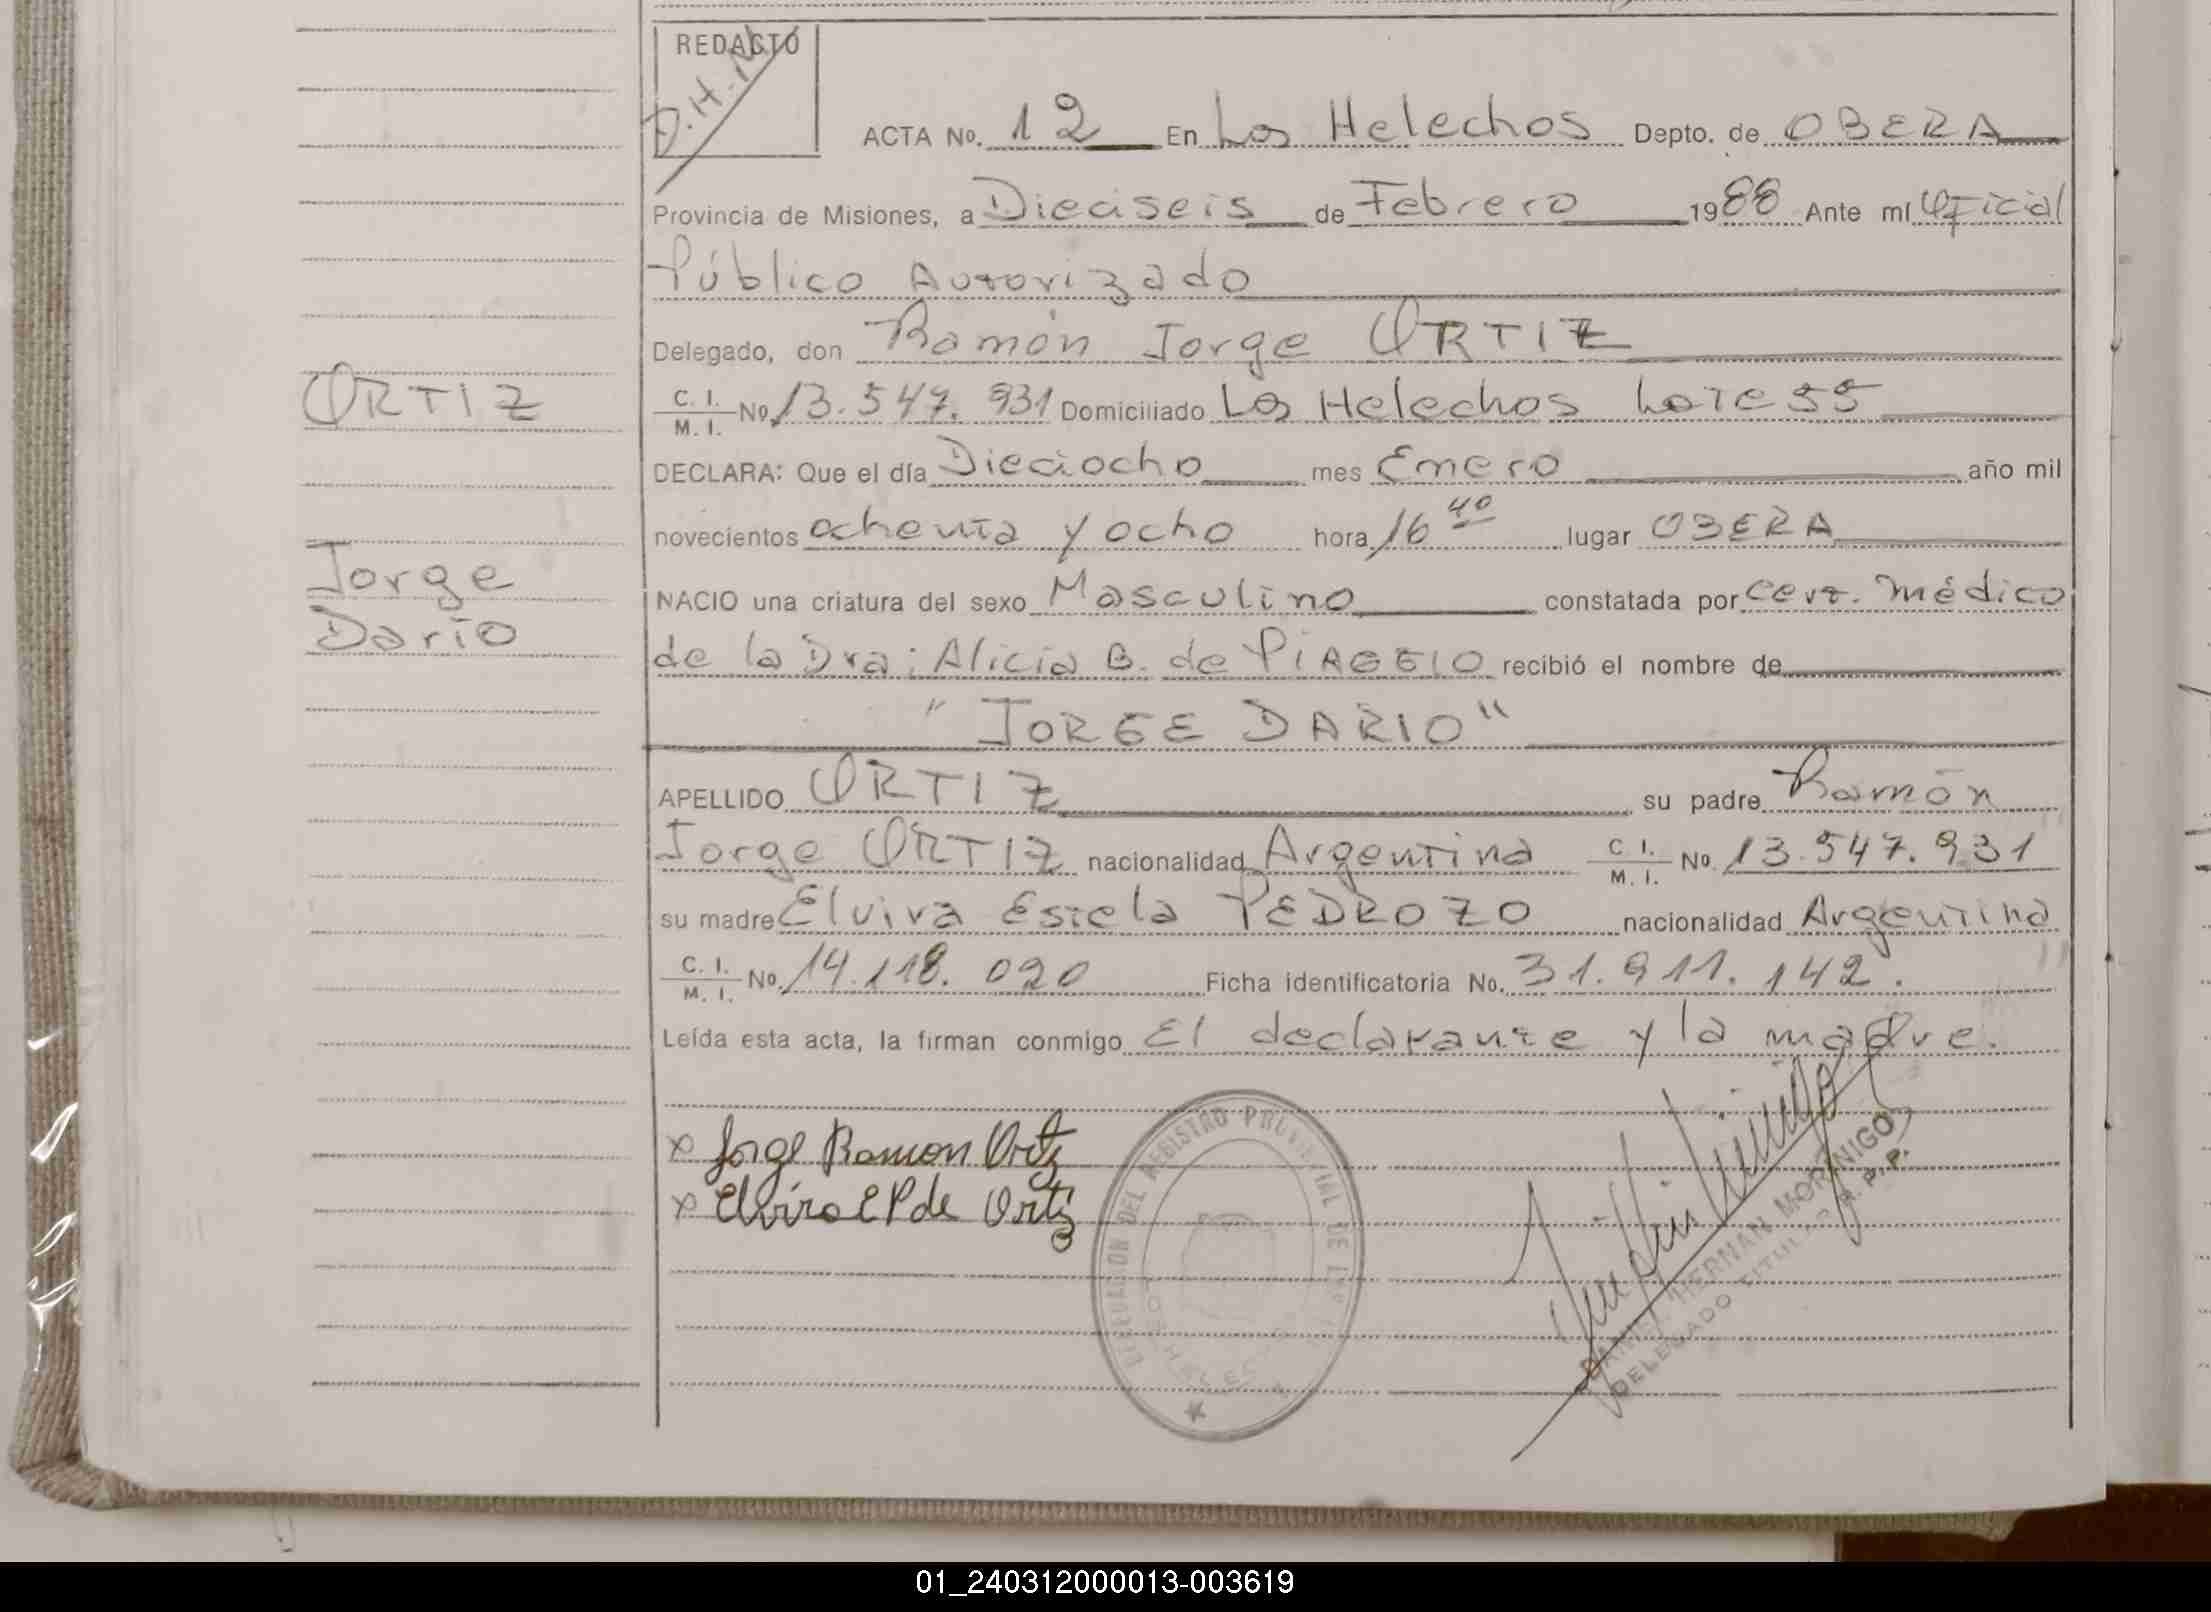 REDACTÓ
D.H.M
ACTA No. 12 En Los Helechos Depto. de OBERA
Provincia de Misiones, a Dieciseis de Febrero 1988 Ante mí Oficial
Público Autorizado
Delegado, don Ramón Jorge ORTIZ
C. I. / M. I. No. 13.547.931 Domiciliado Los Helechos Lote 55
DECLARA: Que el día Dieciocho mes Enero año mil
novecientos ochenta y ocho hora 16 40 lugar OBERA
NACIO una criatura del sexo Masculino constatada por cert. médico
de la Dra; Alicia B. de PIAGGIO recibió el nombre de
"JORGE DARIO"
APELLIDO ORTIZ su padre Ramón
Jorge ORTIZ nacionalidad Argentina C. I. / M. I. No. 13.547.931
su madre Elvira Estela PEDROZO nacionalidad Argentina
C. I. / M. I. No. 14.118.020 Ficha identificatoria No. 31.911.142.
Leída esta acta, la firman conmigo El declarante y la madre.
x Jorge Ramon Ortiz
x Elvira E P de Ortiz
ORTIZ
Jorge
Darío
DEL REGISTRO PROVINCIAL DE
HERNAN MORINIGO
DELEGADO TITULAR R. P. P.
01_240312000013-003619